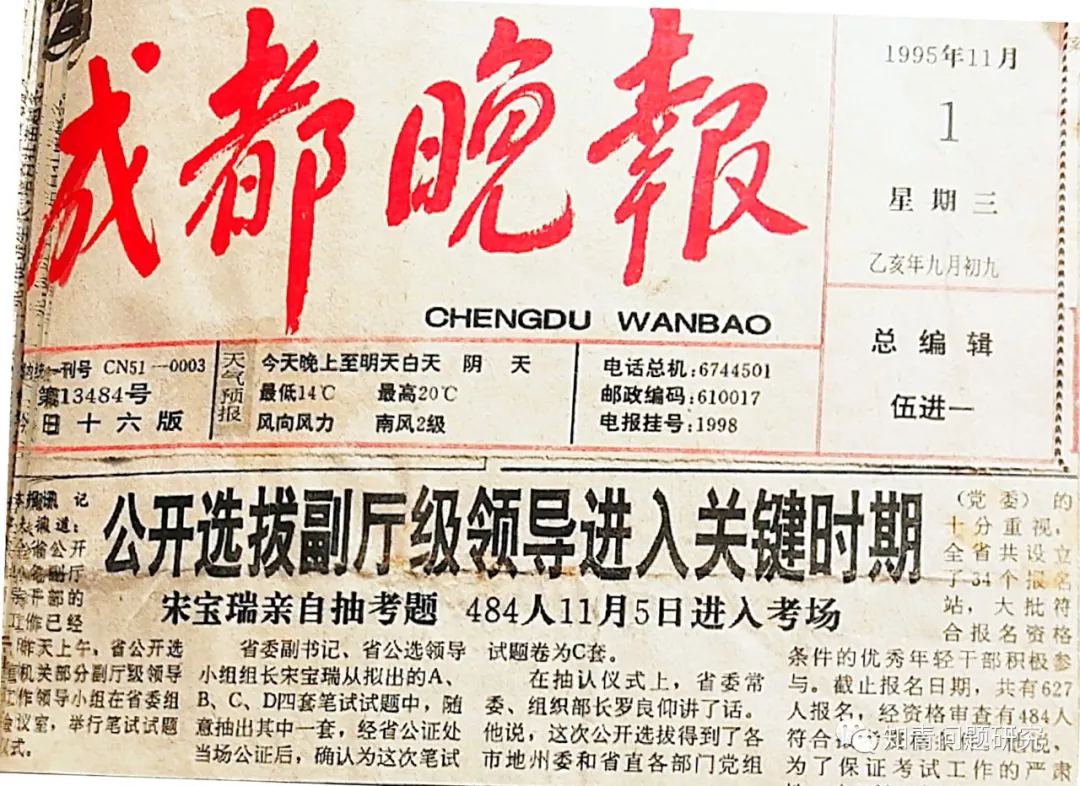 成都晚報
CHENGDU WANBAO
1995年11月
1
星期三
乙亥年九月初九
总编辑
伍进一
一刊号 CN51—0003
第13484号
日十六版
天气预报
今天晚上至明天白天 阴 天
最低14℃ 最高20℃
风向风力 南风2级
电话总机:6744501
邮政编码:610017
电报挂号:1998
公开选拔副厅级领导进入关键时期
宋宝瑞亲自抽考题 484人11月5日进入考场
本报讯 记
报道:
全省公开
副厅
干部的
工作已经
昨天上午,省公开选
机关部分副厅级领导
工作领导小组在省委组
会议室,举行笔试试题
仪式。
省委副书记、省公选领导
小组组长宋宝瑞从拟出的A、
B、C、D四套笔试试题中,随
意抽出其中一套,经省公证处
当场公证后,确认为这次笔试
试题卷为C套。
在抽认仪式上,省委常
委、组织部长罗良仰讲了话。
他说,这次公开选拔得到了各
市地州委和省直各部门党组
(党委)的
十分重视,
全省共设立
了34个报名
站,大批符
合报名资格
条件的优秀年轻干部积极参
与。截止报名日期,共有627
人报名,经资格审查有484人
符合
为了保证考试工作的严肃
知青问题研究